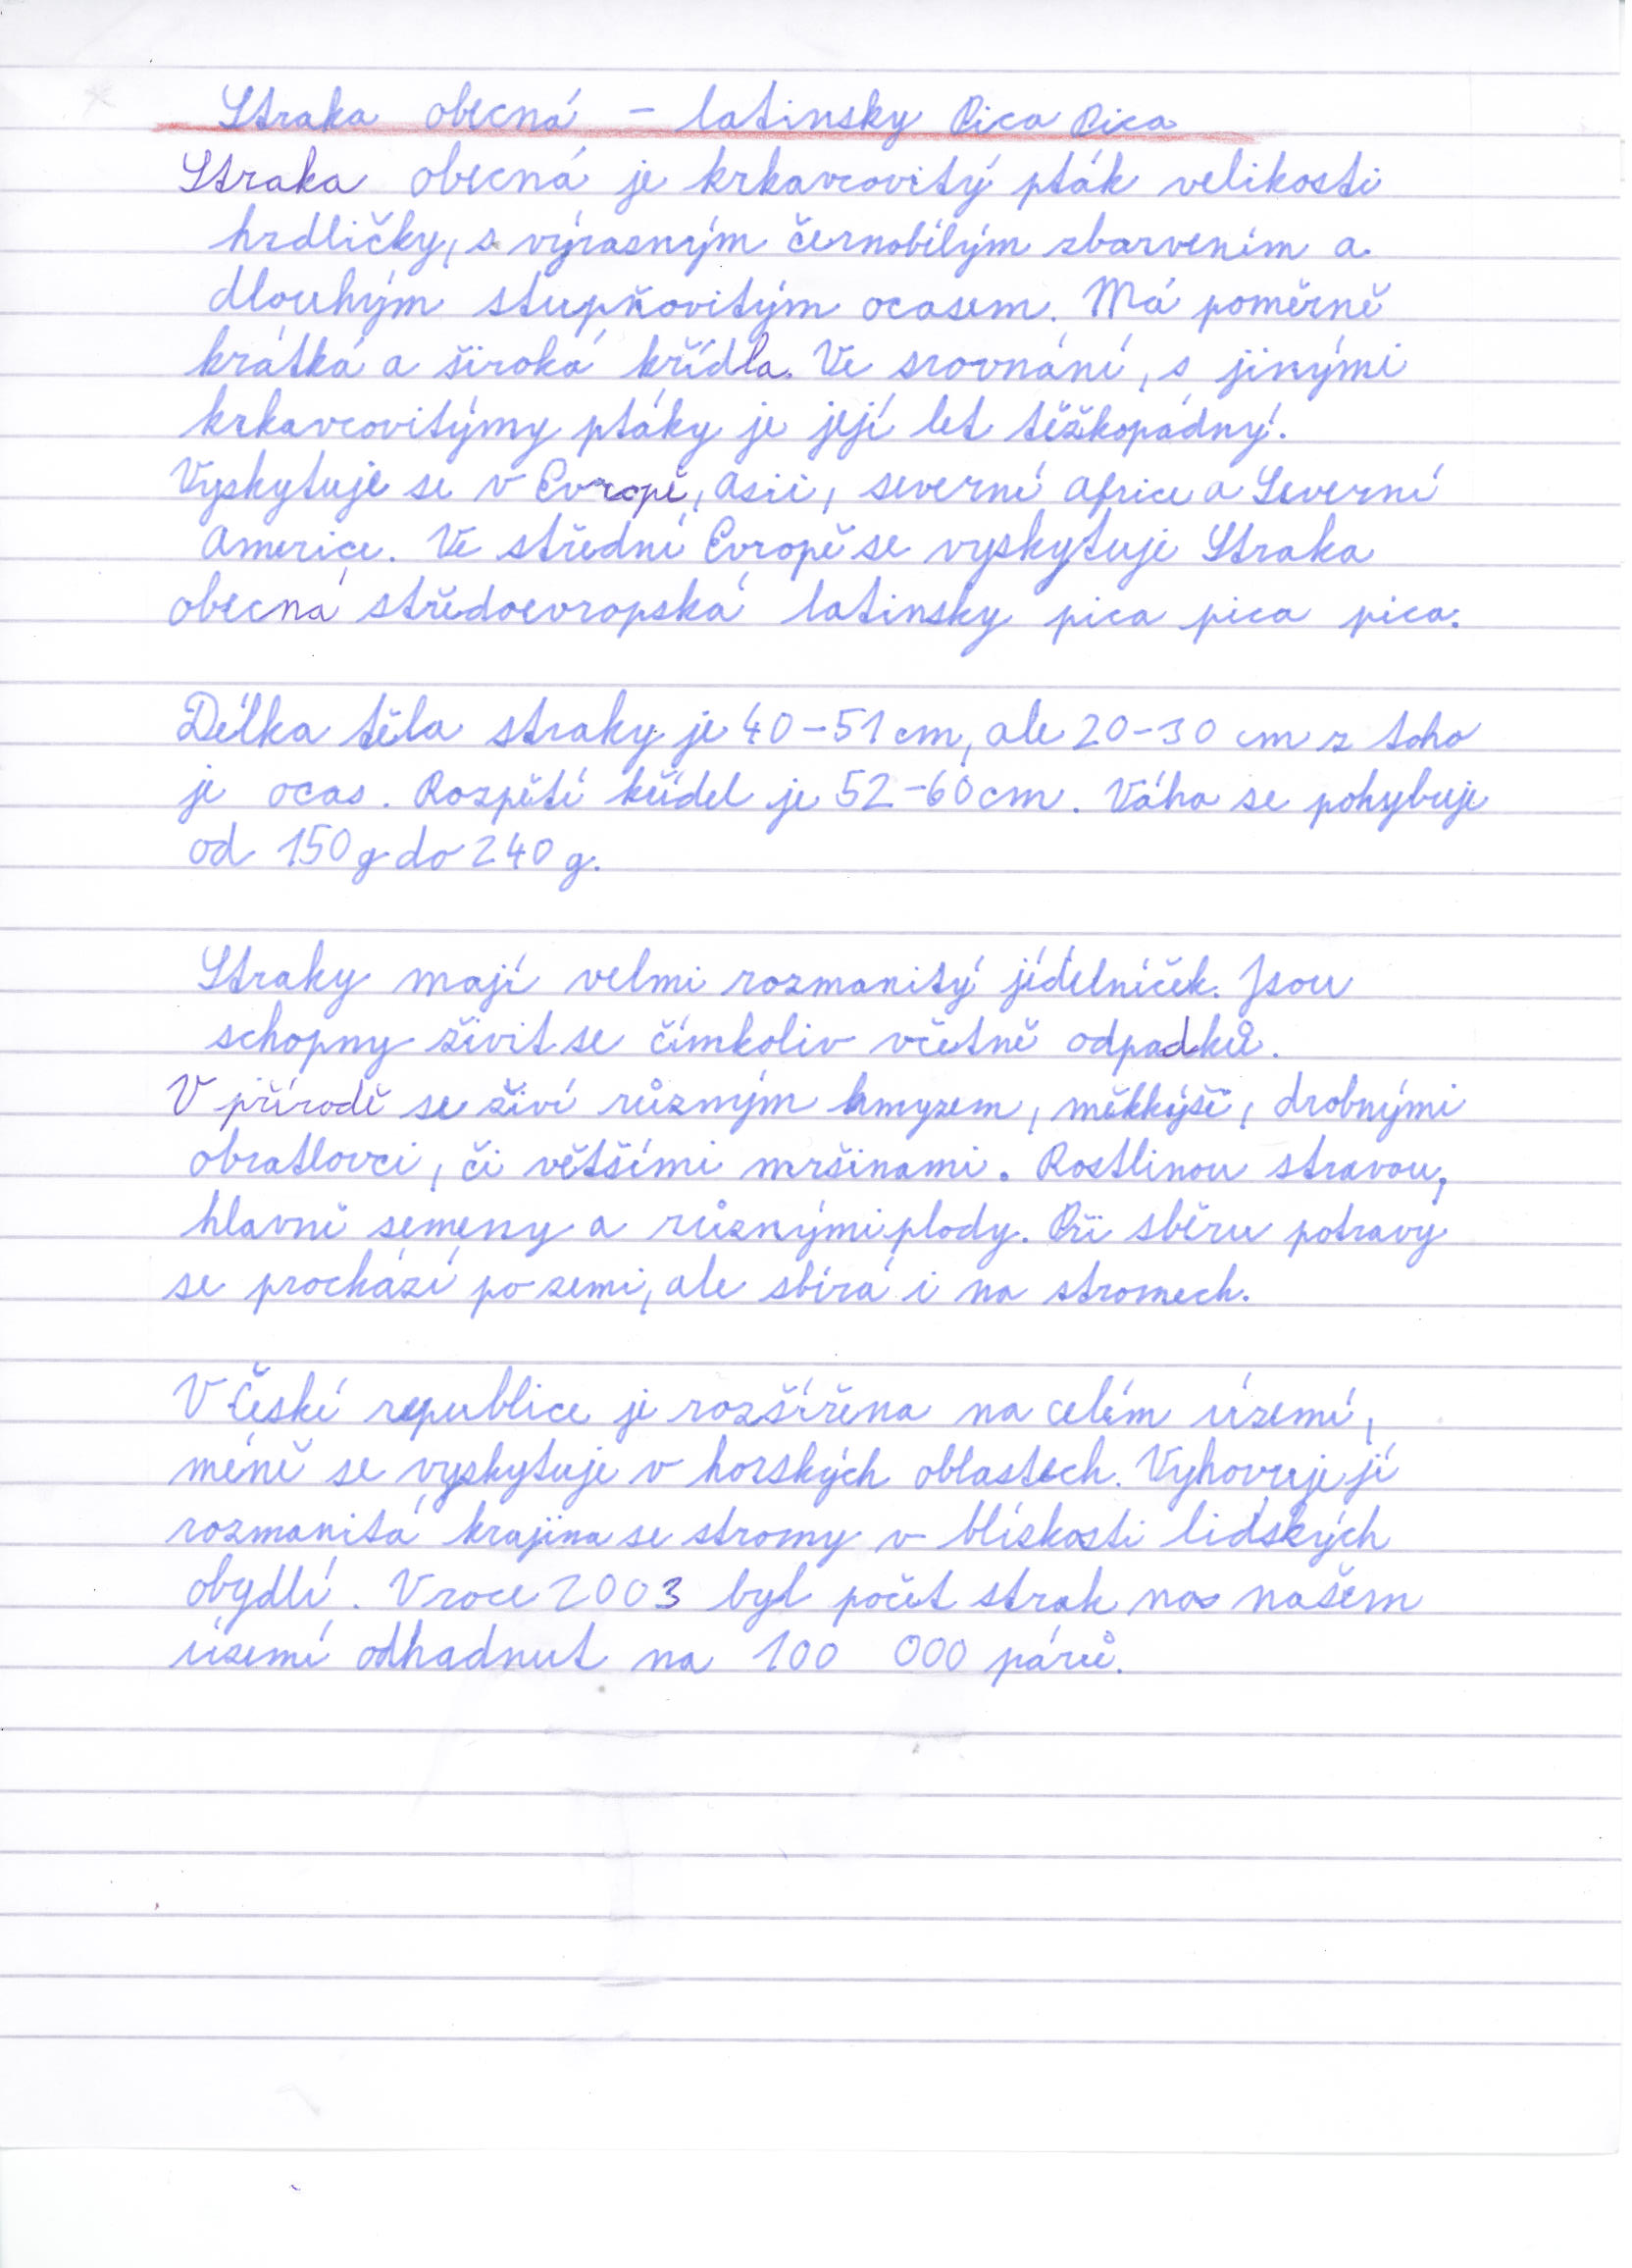 Straka obecná - latinsky Pica Pica
Straka obecná je krkavcovitý pták velikosti
hrdličky, s výrazným černobílým zbarvením a
dlouhým stupňovitým ocasem. Má poměrně
krátká a široká křídla. Ve srovnání, s jinými
krkavcovitýmy ptáky je její let těžkopádný.
Vyskytuje se v Evropě, Asii, severní Africe a Severní
Americe. Ve střední Evropě se vyskytuje Straka
obecná středoevropská latinsky pica pica pica.
Délka těla straky je 40-51 cm, ale 20-30 cm z toho
je ocas. Rozpětí křídel je 52-60 cm. Váha se pohybuje
od 150 g do 240 g.
Straky mají velmi rozmanitý jídelníček. Jsou
schopny živit se čímkoliv včetně odpadků.
V přírodě se živí různým hmyzem, měkkýši, drobnými
obratlovci, či většími mršinami. Rostlinou stravou,
hlavně semeny a různými plody. Při sběru potravy
se prochází po zemi, ale sbírá i na stromech.
V České republice je rozšířena na celém území,
méně se vyskytuje v horských oblastech. Vyhovuje jí
rozmanitá krajina se stromy v blízkosti lidských
obydlí. V roce 2003 byl počet strak na našem
území odhadnut na 100 000 párů.